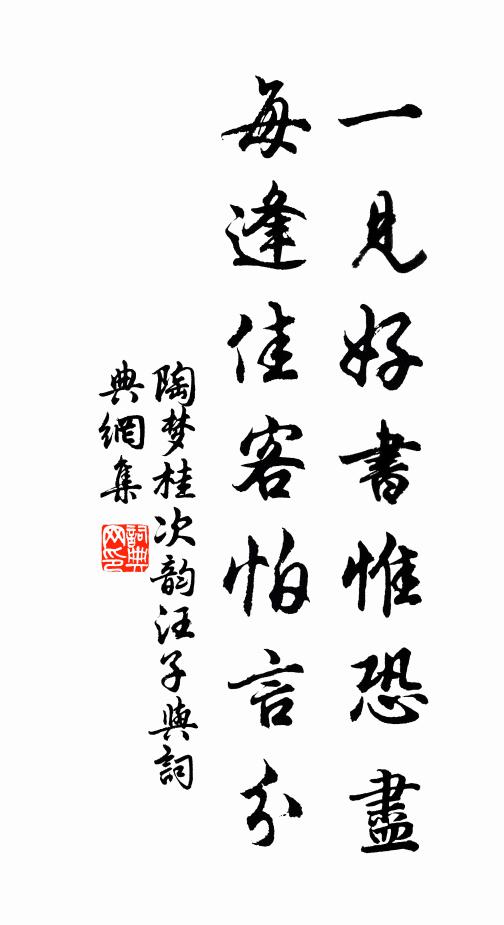 一見好書惟恐盡
每逢佳客怕言分
陶梦桂次韵汪子與詞
典網集
詞典
网印